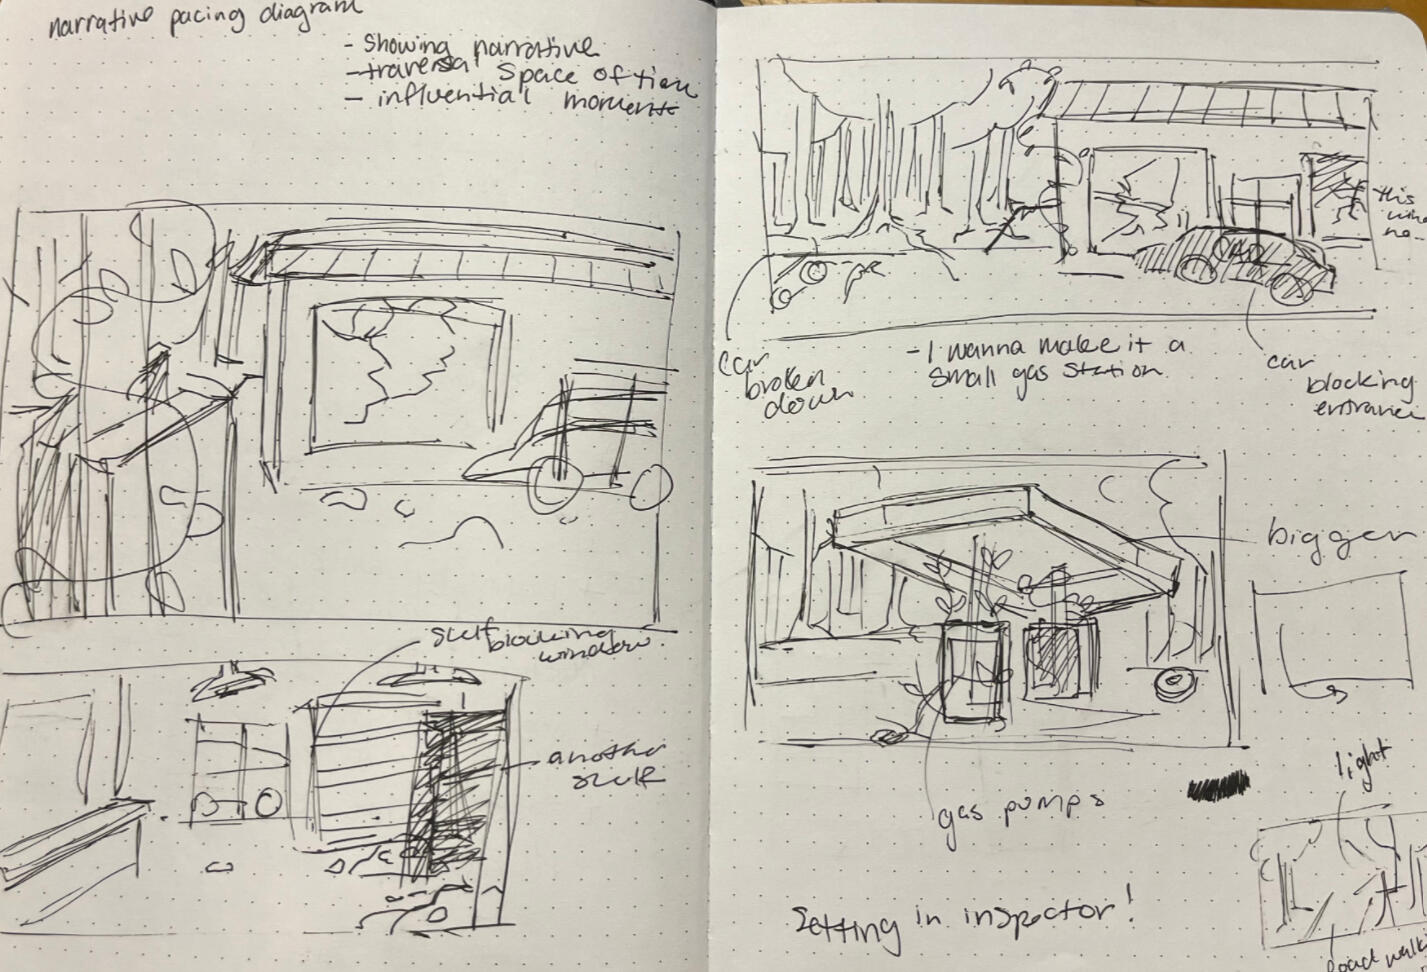 narrative pacing diagram
- showing narrative
- traversal space of time
- influential moments
shelf
blocking
window
another
shelf
this
car
broken
down
- I wanna make it a
small gas station
car
blocking
entrance
bigger
gas pumps
light
Setting in inspector!
road